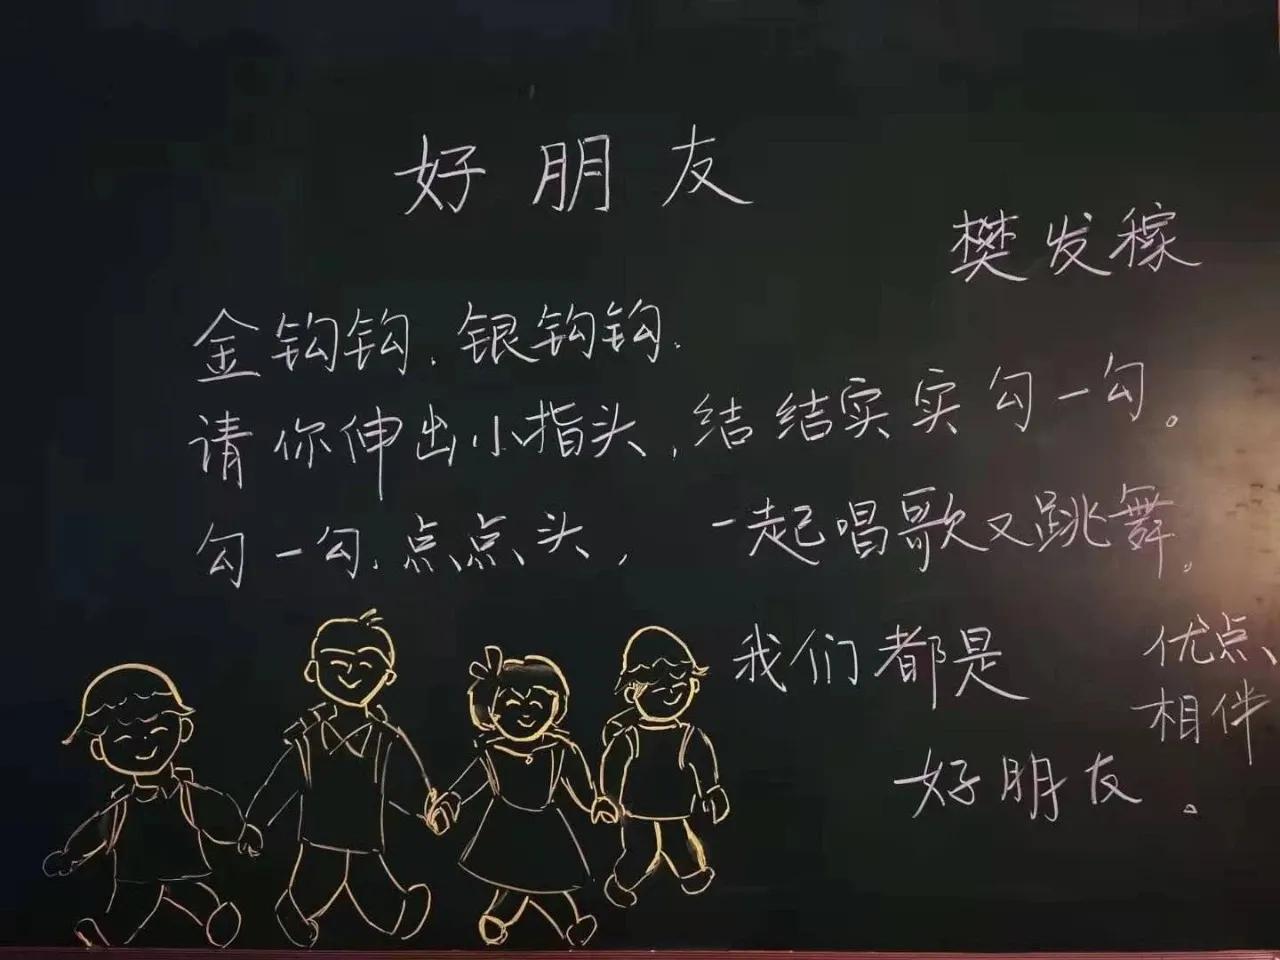 好朋友
樊发稼
金钩钩,银钩钩,
请你伸出小指头,结结实实勾一勾。
勾一勾,点点头,一起唱歌又跳舞。
我们都是
好朋友。
优点、
相伴